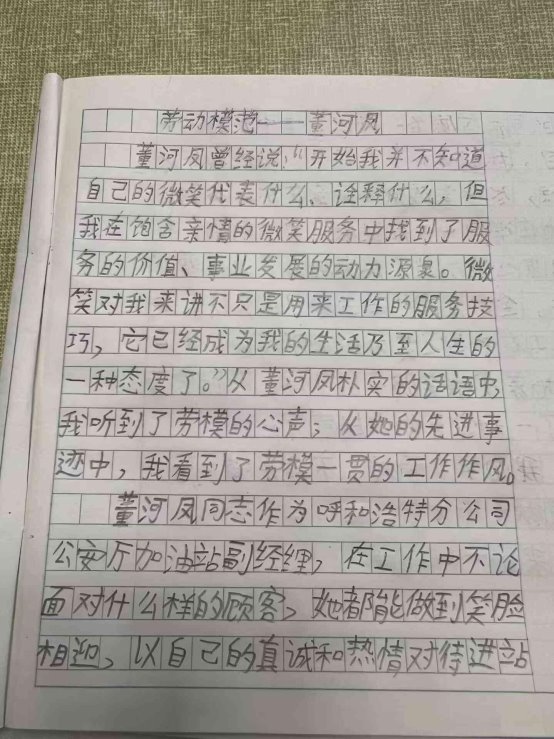 劳动模范——董河凤
董河凤曾经说:“开始我并不知道
自己的微笑代表什么、诠释什么,但
我在饱含亲情的微笑服务中找到了服
务的价值、事业发展的动力源泉。微
笑对我来讲不只是用来工作的服务技
巧,它已经成为我的生活乃至人生的
一种态度了。”从董河凤朴实的话语中,
我听到了劳模的心声;从她的先进事
迹中,我看到了劳模一贯的工作作风。
董河凤同志作为呼和浩特分公司
公安厅加油站副经理,在工作中不论
面对什么样的顾客,她都能做到笑脸
相迎、以自己的真诚和热情对待进站